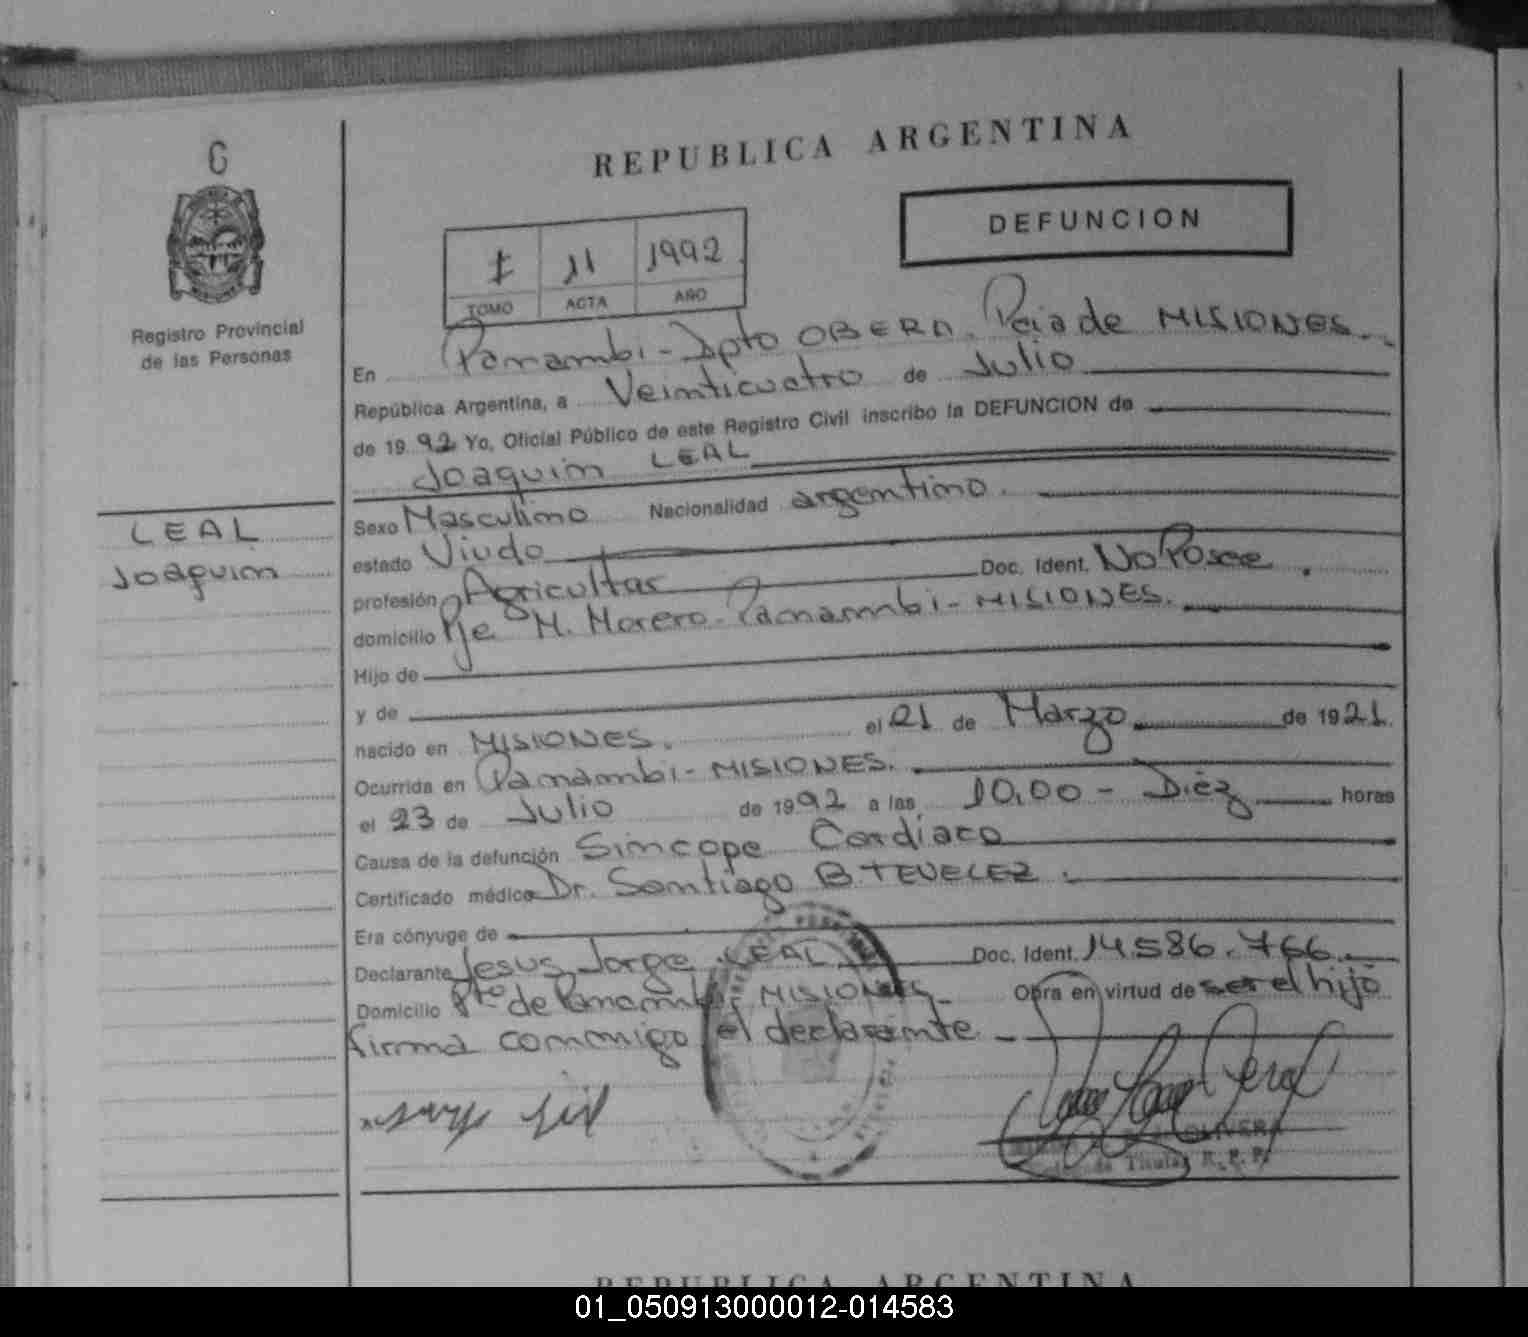 6
REPUBLICA ARGENTINA
DEFUNCION
I 11 1992
TOMO ACTA AÑO
Registro Provincial
de las Personas
En Panambi - Dpto OBERA. Pcia de MISIONES
República Argentina, a Veinticuatro de Julio
de 1992 Yo, Oficial Público de este Registro Civil inscribo la DEFUNCION de
Joaquim LEAL
LEAL
Joaquim
Sexo Masculino Nacionalidad argentino.
estado Viudo
profesión Agricultor Doc. Ident. No Posee.
domicilio Pje M. Moreno - Panambi - MISIONES.
Hijo de
y de
nacido en MISIONES. el 21 de Marzo de 1921.
Ocurrida en Panambi - MISIONES.
el 23 de Julio de 1992 a las 10,00 - Diéz horas
Causa de la defunción Sincope Cardiaco
Certificado médico Dr. Santiago B. TEVELEZ.
Era cónyuge de
Declarante Jesus Jorge LEAL Doc. Ident. 14.586.766.
Domicilio Pto de Panambi, MISIONES - Obra en virtud de ser el hijo
firma conmigo el declarante. -
Titular R. P. P.
REPUBLICA ARGENTINA
01_050913000012-014583